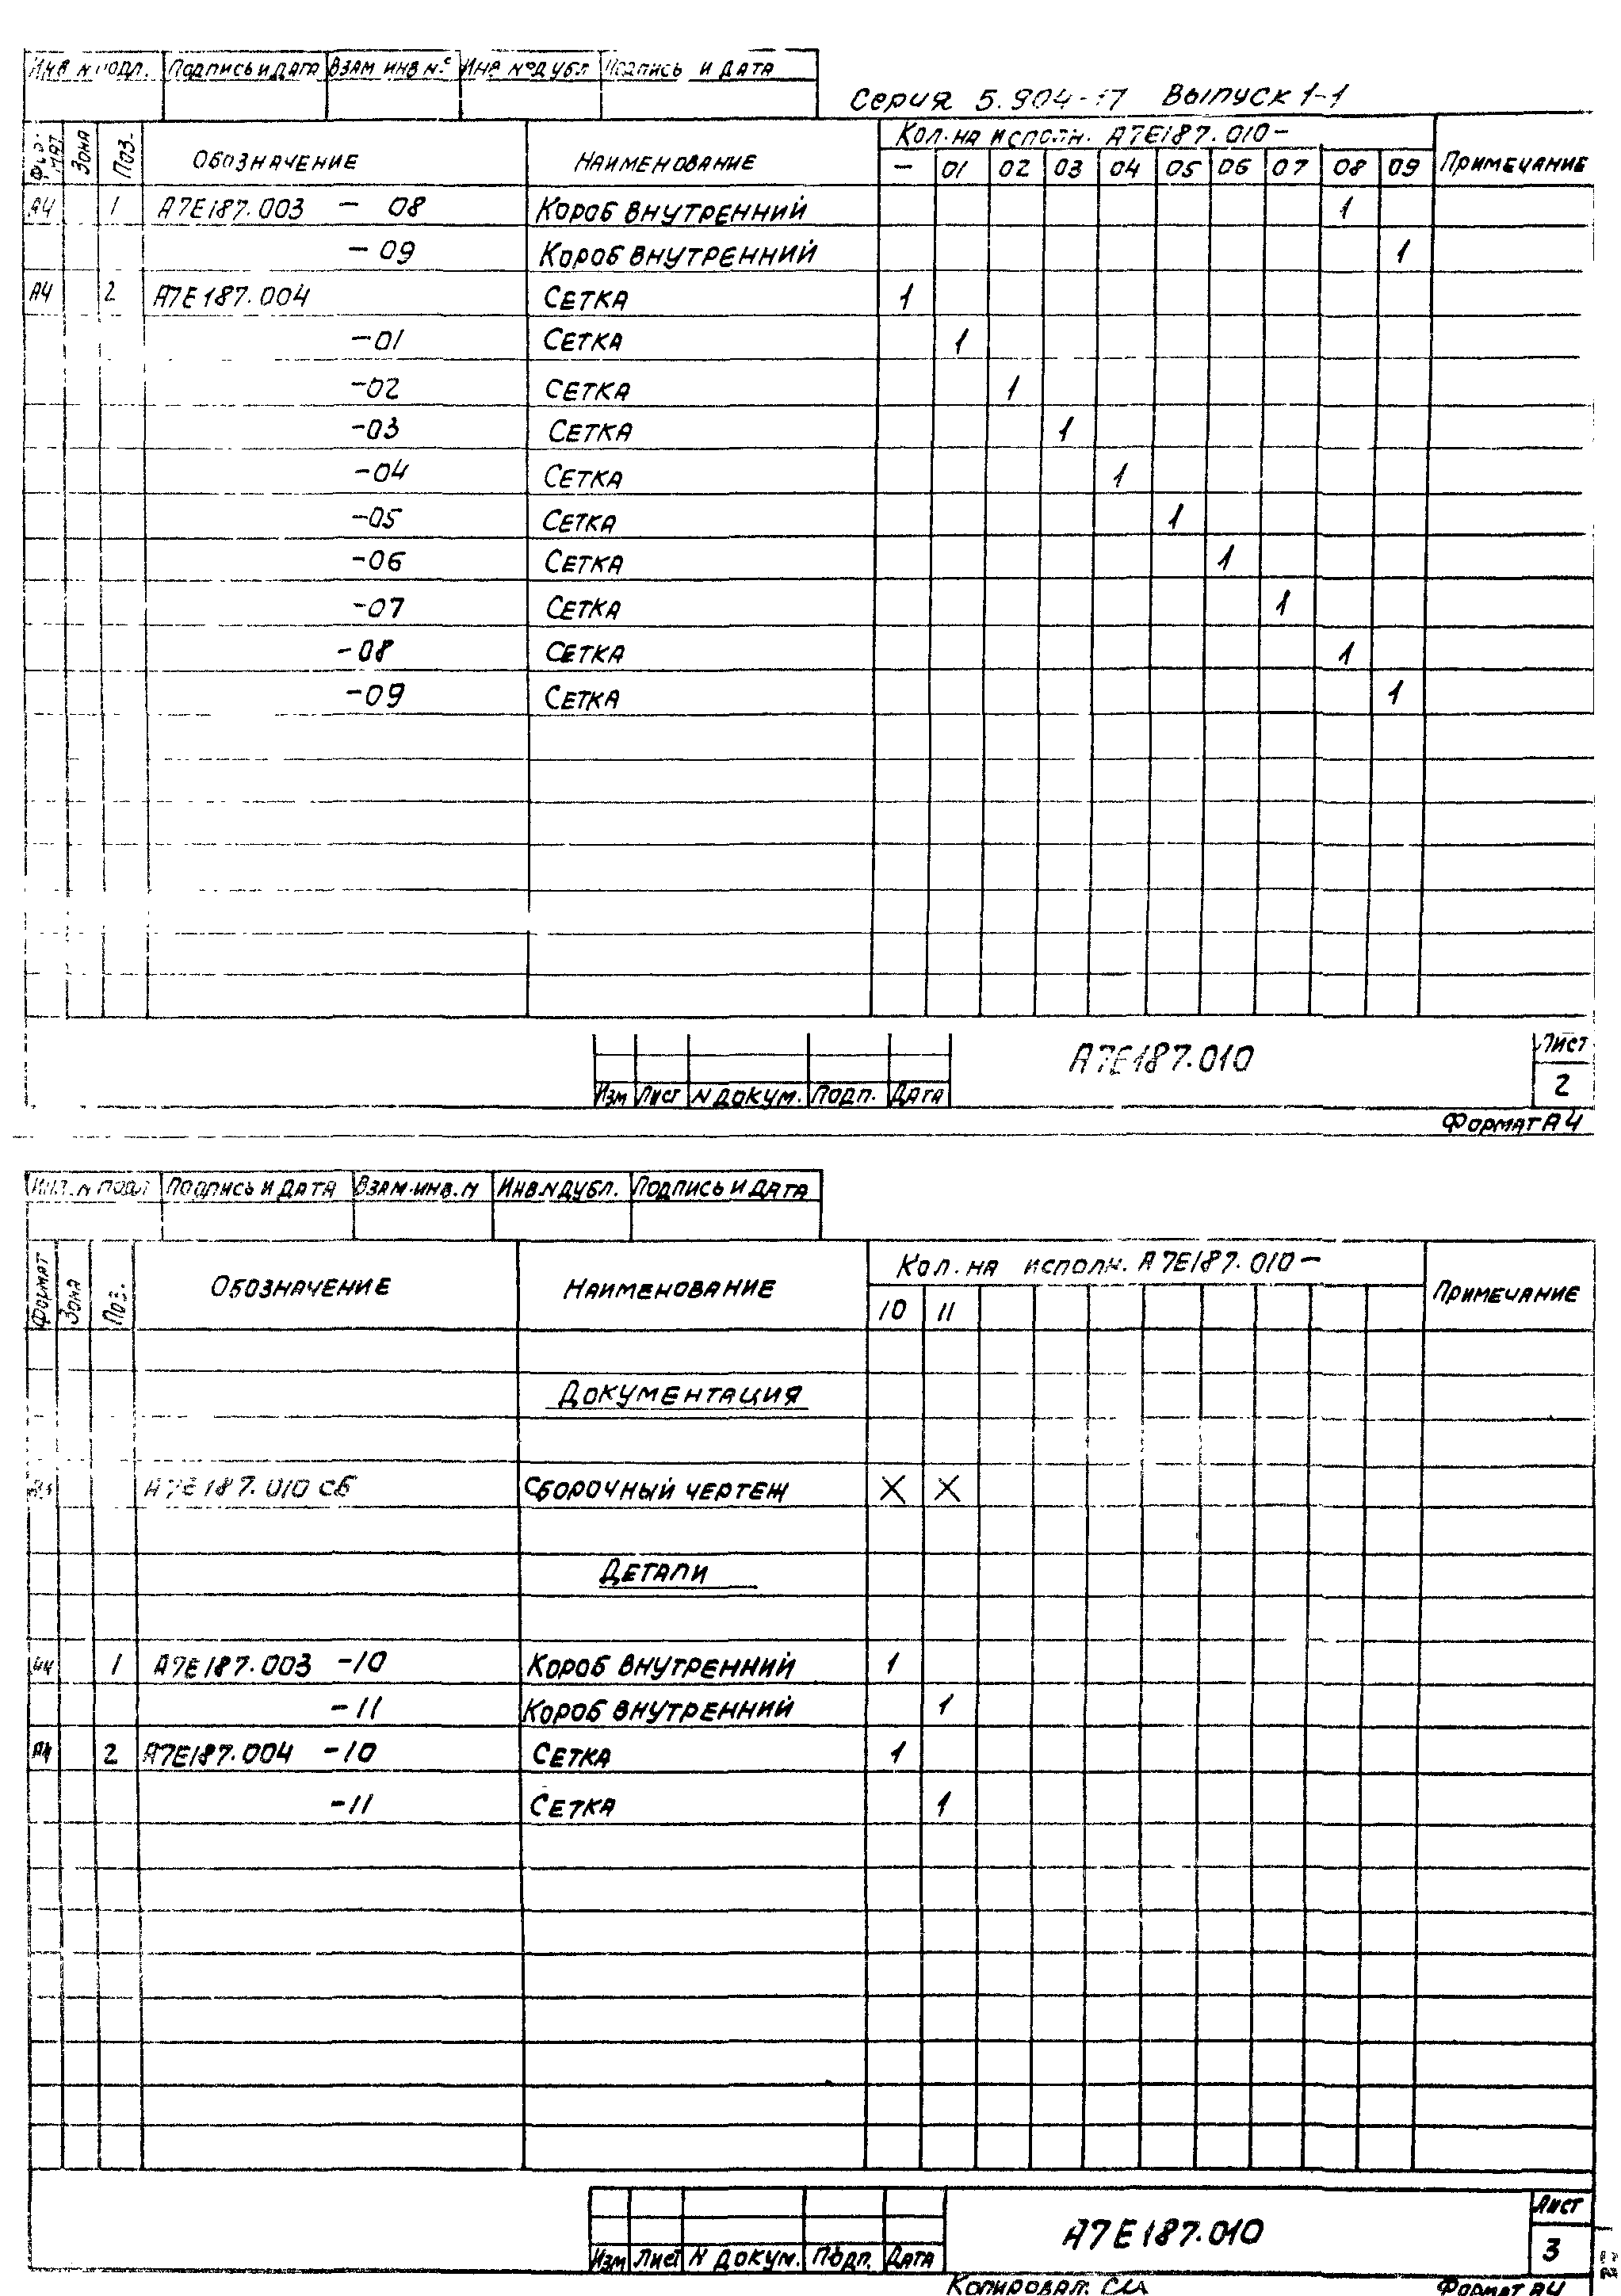 Инв. № подл. Подпись и дата Взам инв № Инв № дубл Подпись и дата
Серия 5.904-17 Выпуск 1-1
Формат Зона Поз. Обозначение Наименование Кол. на исполн. А7Е187.010- Примечание
- 01 02 03 04 05 06 07 08 09
А4 1 А7Е187.003 - 08 Короб внутренний 1
-09 Короб внутренний 1
А4 2 А7Е187.004 Сетка 1
-01 Сетка 1
-02 Сетка 1
-03 Сетка 1
-04 Сетка 1
-05 Сетка 1
-06 Сетка 1
-07 Сетка 1
-08 Сетка 1
-09 Сетка 1
А7Е187.010
Лист
2
Изм Лист N докум. Подп. Дата
Формат А4
Инв. N подл Подпись и дата Взам. инв. N Инв. N дубл. Подпись и дата
Формат Зона Поз. Обозначение Наименование Кол. на исполн. А7Е187.010- Примечание
10 11
Документация
А7Е187.010 СБ Сборочный чертеж X X
Детали
А4 1 А7Е187.003 -10 Короб внутренний 1
-11 Короб внутренний 1
А4 2 А7Е187.004 -10 Сетка 1
-11 Сетка 1
А7Е187.010
Лист
3
Изм Лист N докум. Подп. Дата
Копировал:
Формат А4